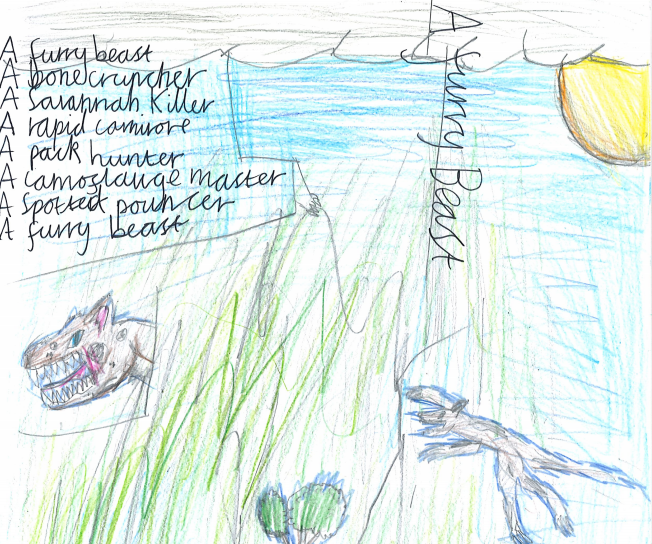 A furry beast
A bonecruncher
A Savannah Killer
A rapid carnivore
A pack hunter
A camoflauge master
A Spotted pouncer
A furry beast
A furry Beast